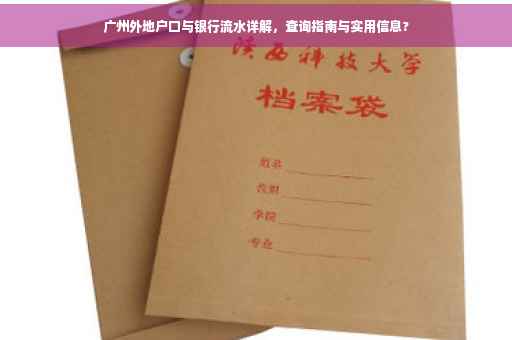 广州外地户口与银行流水详解，查询指南与实用信息？
陕西科技大学
档案袋
姓名
学院
专业